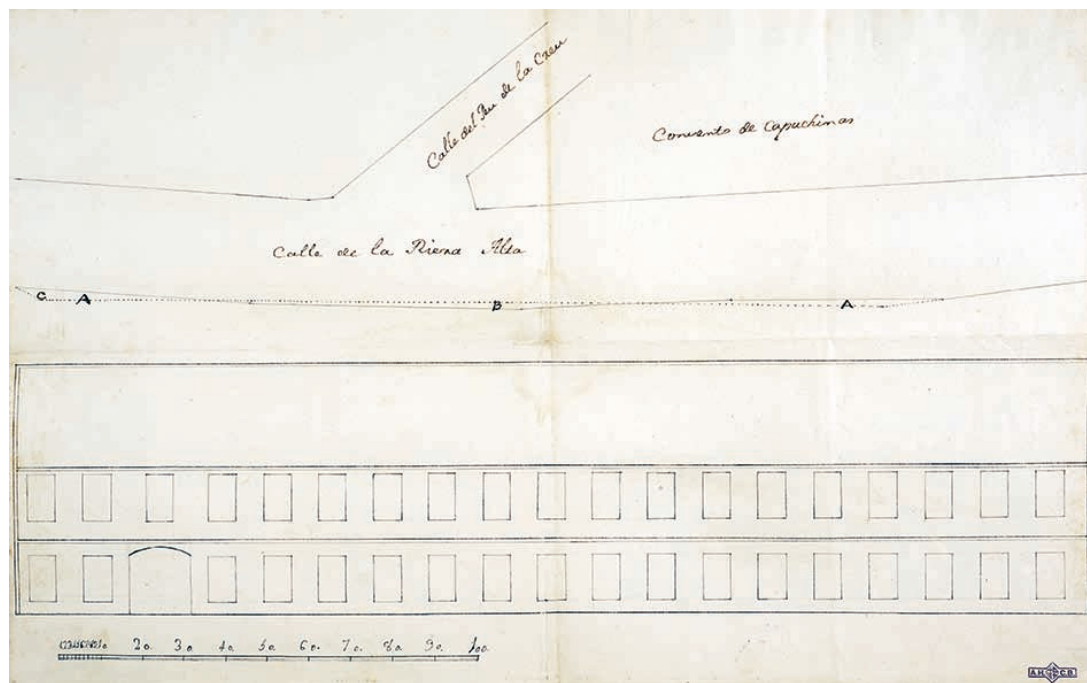 Calle del Peu de la Creu
Convento de Capuchinas
Calle de la Riera Alta
C A B A
2o. 3o. 4o. 5o. 6o. 7o. 8o. 9o. 100
A.H. C.B.